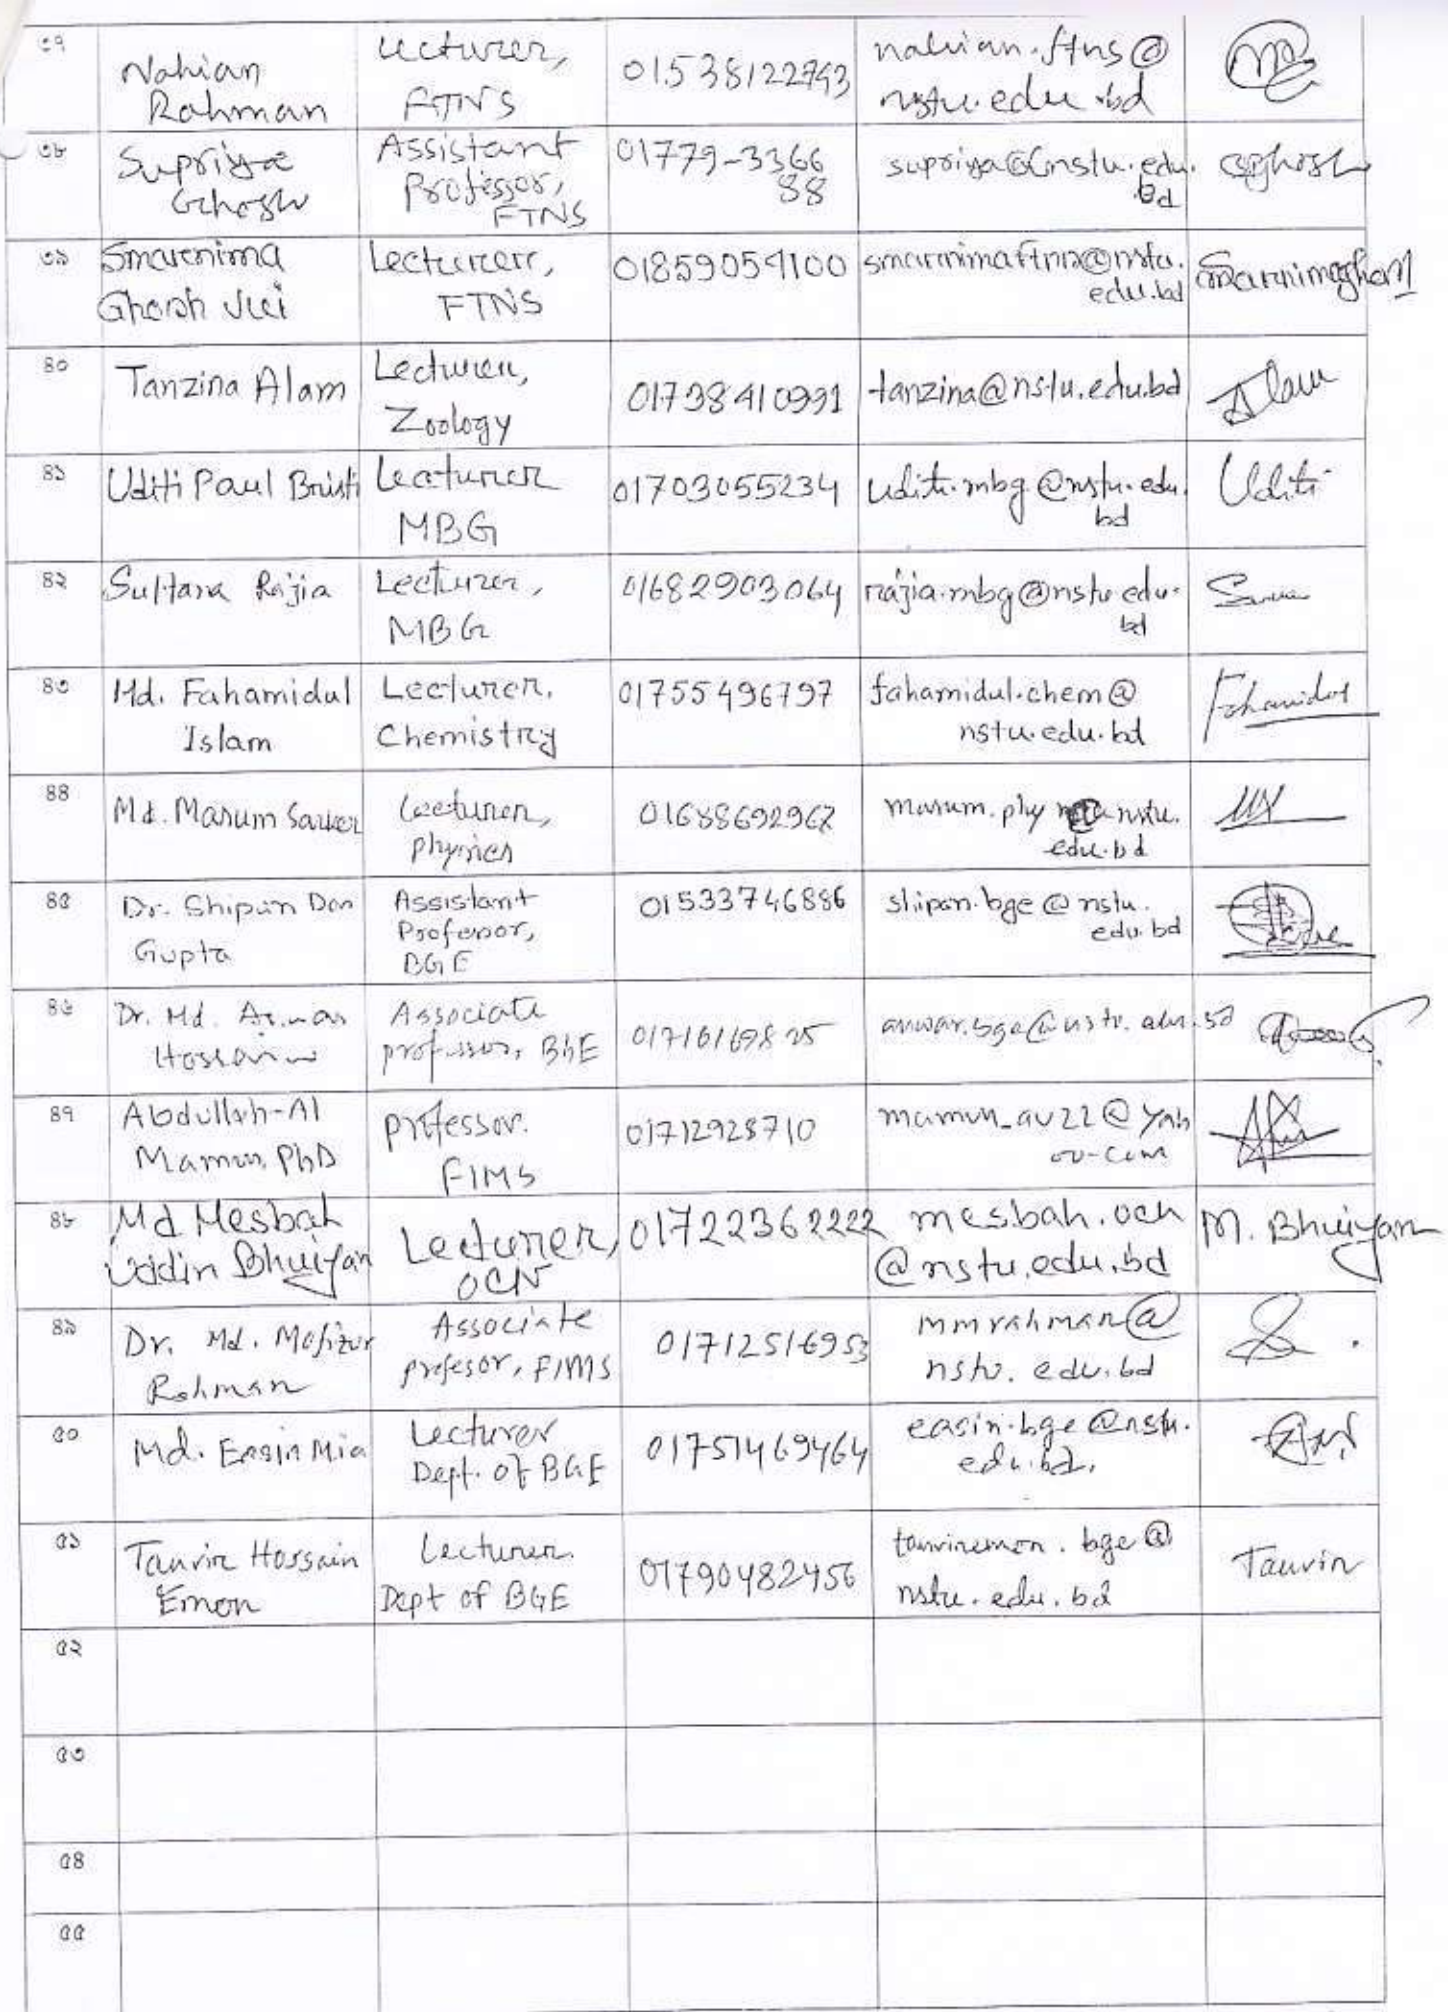 ৩৭
Nahian
Rahman
Lecturer,
FTNS
01538122743
nahian.ftns@
nstu.edu.bd
৩৮
Supriya
Ghosh
Assistant
Professor,
FTNS
01779-3366
88
supriya@nstu.edu.
bd
SGhosh
৩৯
Smarnima
Ghosh Jui
Lecturer,
FTNS
01859059100
smarnimaftns@nstu.
edu.bd
৪০
Tanzina Alam
Lecturer,
Zoology
01738410991
tanzina@nstu.edu.bd
Alam
৪১
Uditi Paul Bristi
Lecturer
MBG
01703055234
uditi.mbg@nstu.edu.
bd
Uditi
৪২
Sultana Rajia
Lecturer,
MBG
01682903064
rajia.mbg@nstu.edu.
bd
৪৩
Md. Fahamidul
Islam
Lecturer,
Chemistry
01755496797
fahamidul.chem@
nstu.edu.bd
Fahamidul
৪৪
Md. Masum Sarker
Lecturer,
physics
01688692962
masum.phy @nstu.
edu.bd
৪৫
Dr. Shipan Das
Gupta
Assistant
Professor,
BGE
01533746886
shipan.bge@nstu.
edu.bd
৪৬
Dr. Md. Anwar
Hossain
Associate
professor, BGE
anwar.bge@nstu.edu.bd
৪৭
Abdullah-Al
Mamun, PhD
professor.
FIMS
01712928710
mamun_au22@yah
oo.com
৪৮
Md Mesbah
Uddin Bhuiyan
Lecturer,
OCN
01722362222
mesbah.ocn
@nstu.edu.bd
M. Bhuiyan
৪৯
Dr. Md. Mofizur
Rahman
Associate
profesor, FIMS
01712516953
mmrahman@
nstu.edu.bd
৫০
Md. Easin Mia
Lecturer
Dept. of BGE
01751469464
easin.bge@nstu.
edu.bd.
৫১
Tanvir Hossain
Emon
Lecturer.
Dept of BGE
01790482456
tanviremon.bge@
nstu.edu.bd
Tanvir
৫২
৫৩
৫৪
৫৫